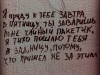 Я ПРИДУ К ТЕБЕ ЗАВТРА
В ПЯТНИЦУ, ТЫ ЗАВАРИШЬ
МНЕ ЧАЙНЫЙ ПАКЕТИК,
Я ТИХО ПОШЛЮ ТЕБЯ
В ЗАДНИЦУ, ПОТОМУ,
ЧТО ПРИШЕЛ НЕ ЗА ЭТИМ